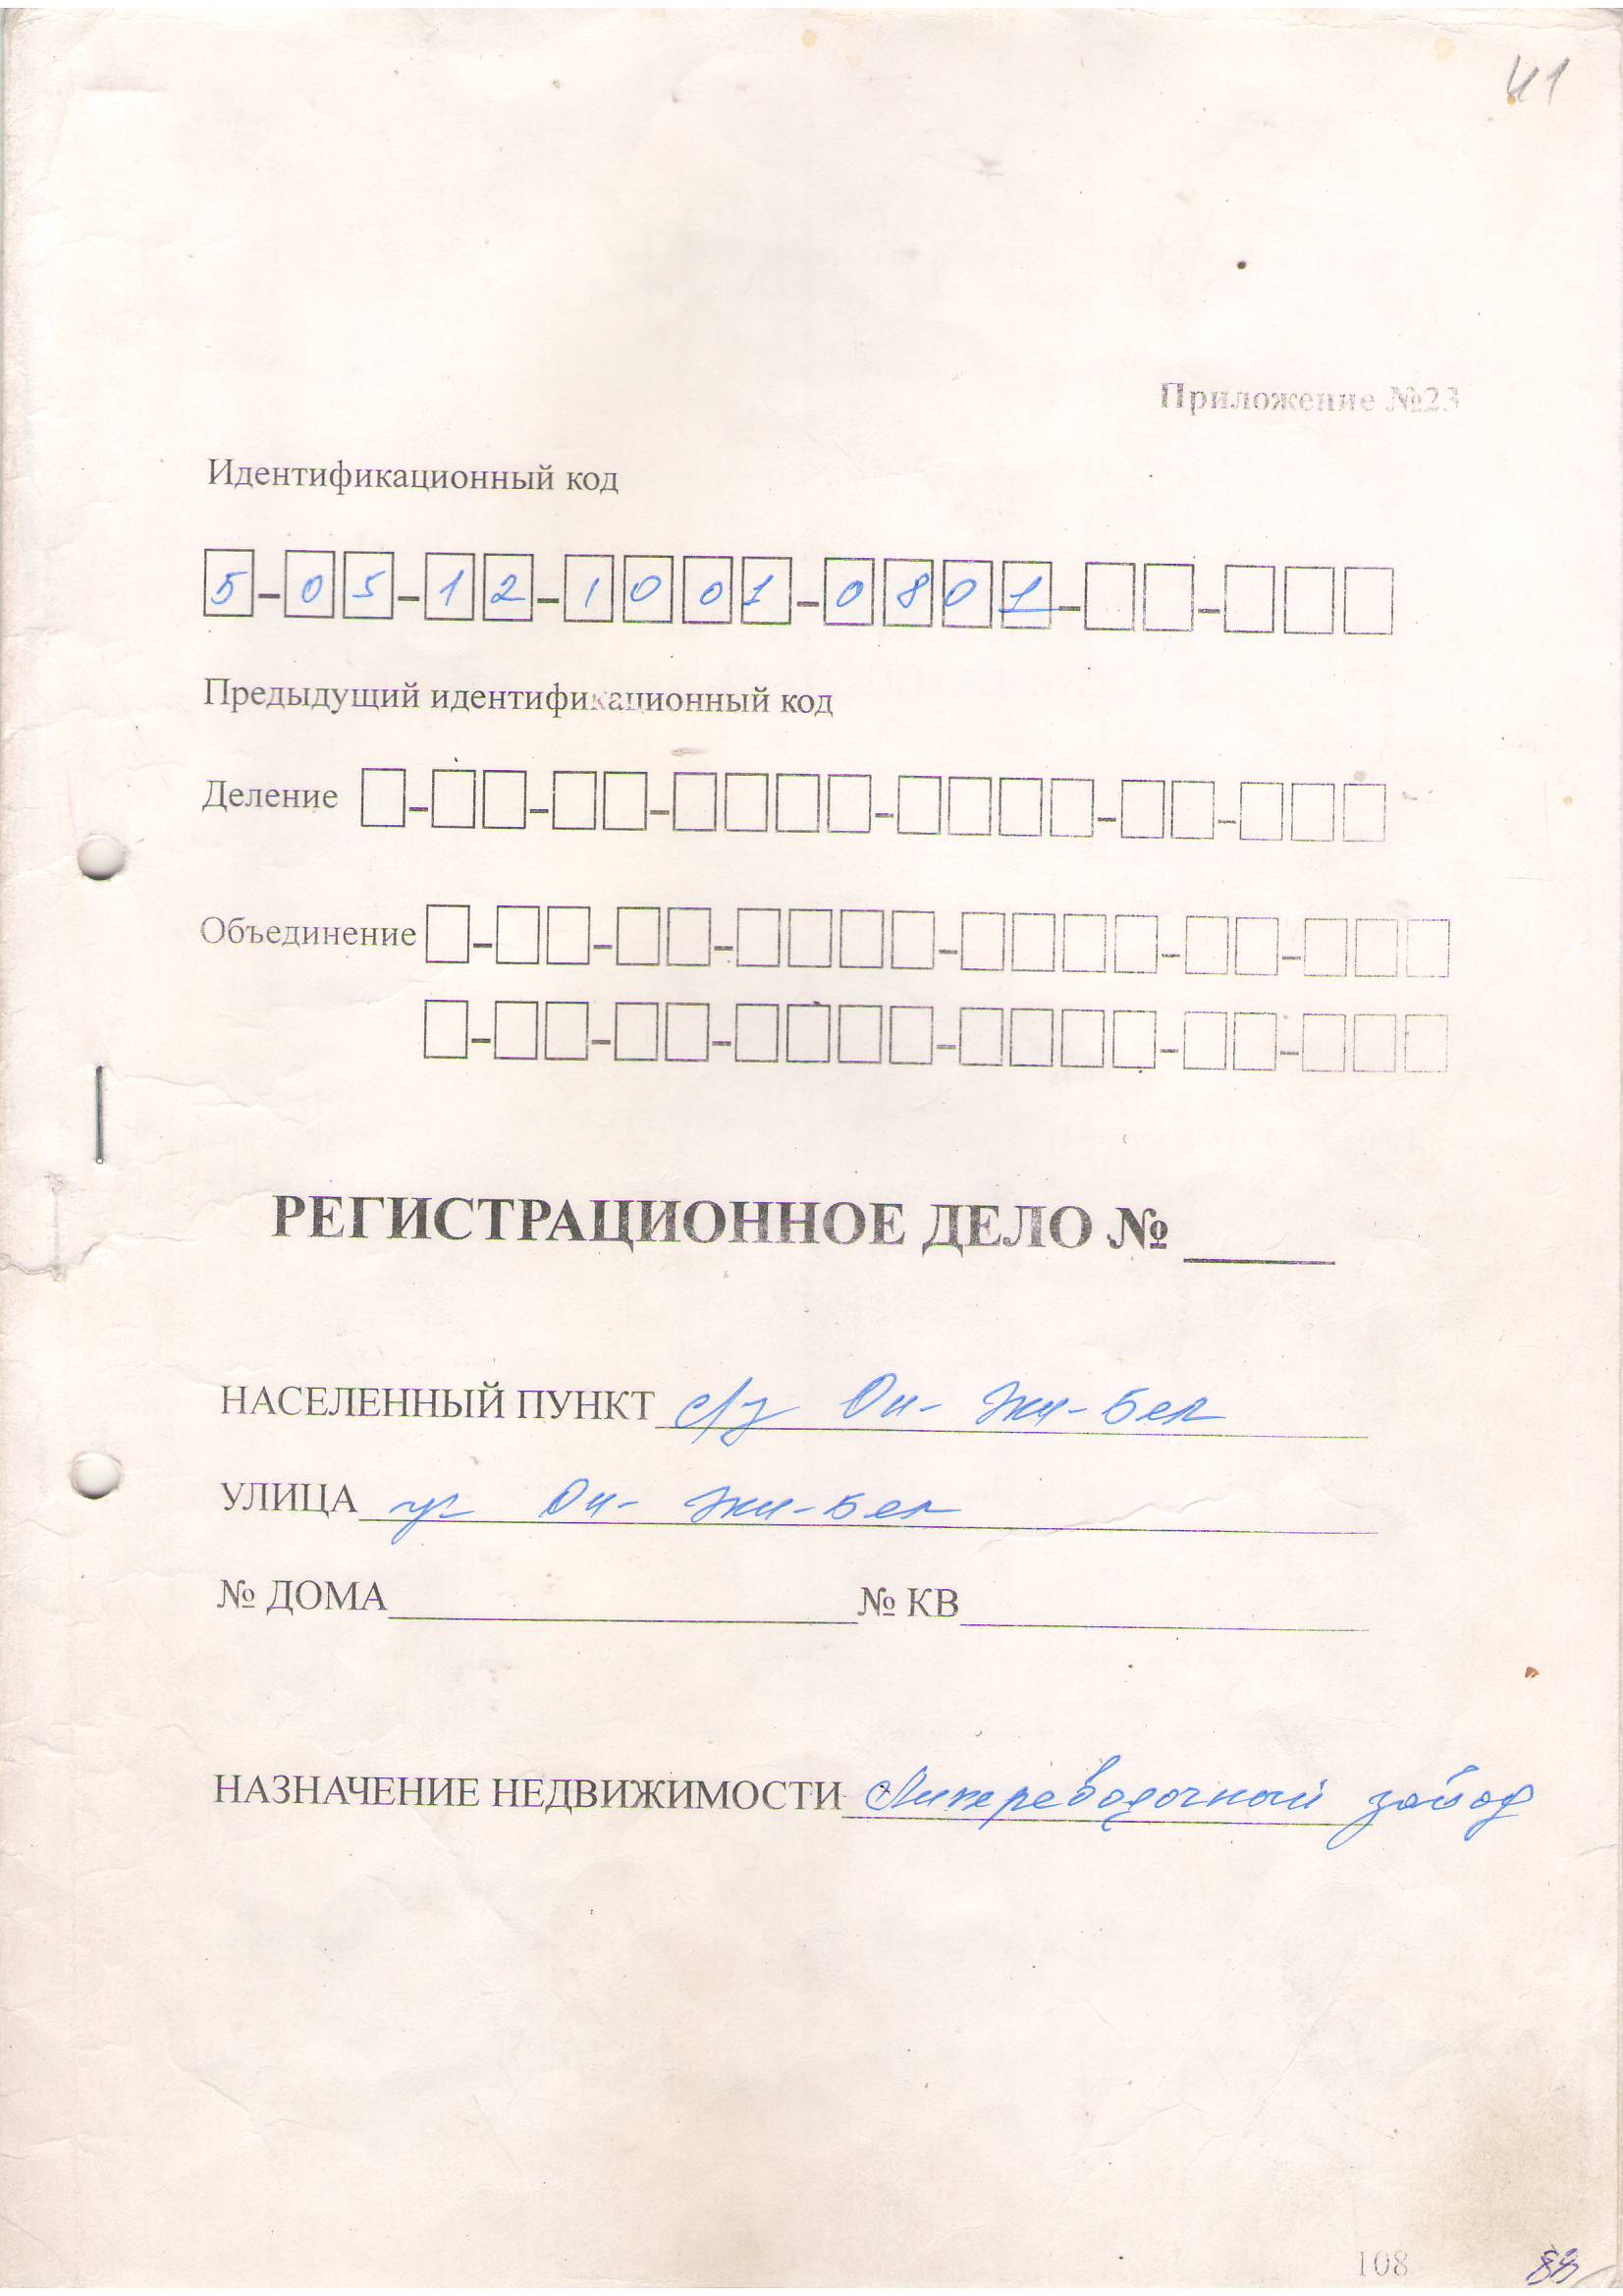 41
Приложение №23
Идентификационный код
5-05-12-1001-0801-
Предыдущий идентификационный код
Деление
Объединение
РЕГИСТРАЦИОННОЕ ДЕЛО № ____
НАСЕЛЕННЫЙ ПУНКТ с/з Он-Эки-Бел
УЛИЦА ул Он-Эки-Бел
№ ДОМА № КВ
НАЗНАЧЕНИЕ НЕДВИЖИМОСТИ Ликероводочный завод
108